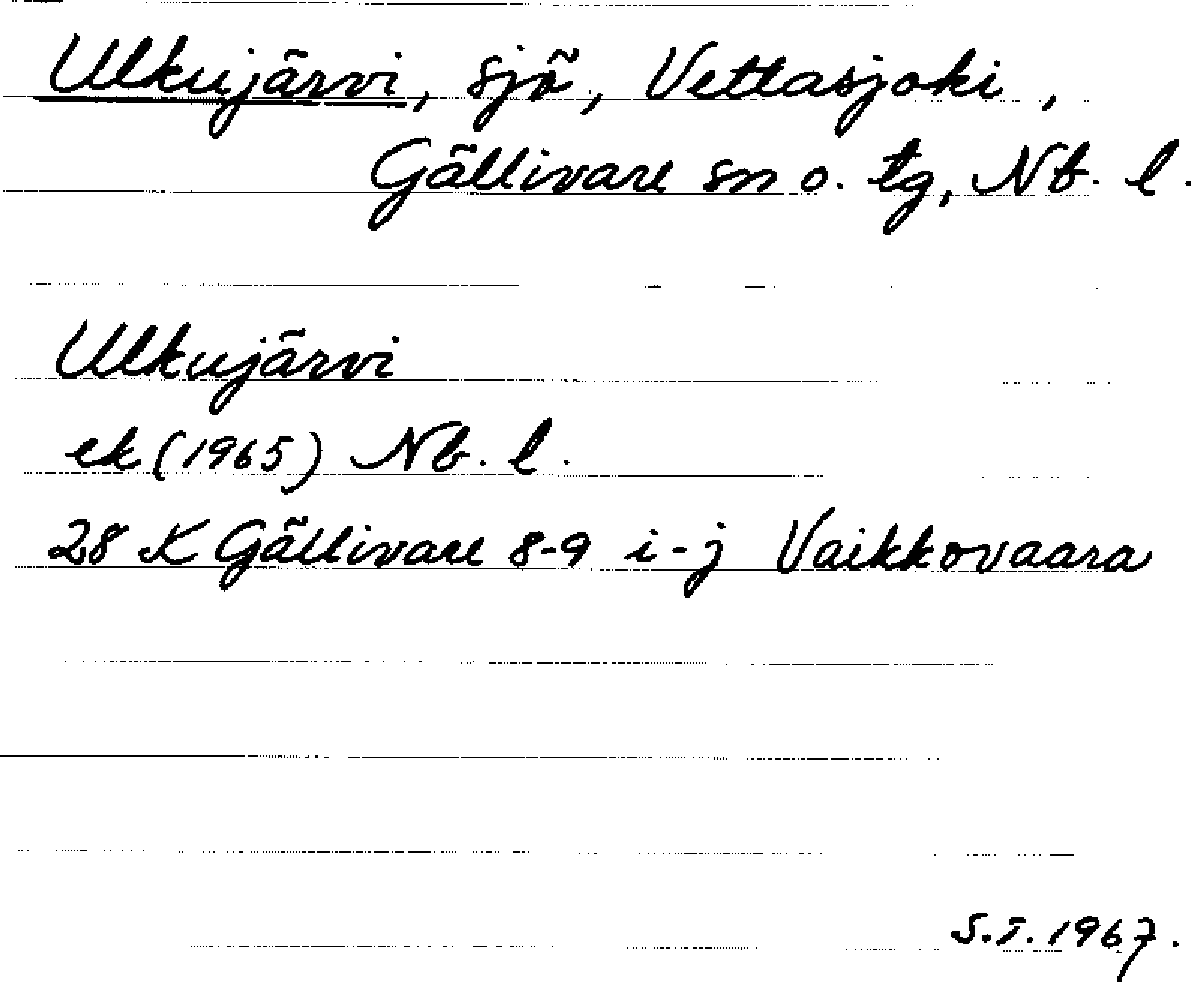 Ulkujärvi, sjö, Vettasjoki,
Gällivare sn o. tg, Nb. l.
Ulkujärvi
ek (1965) Nb. l.
28 K Gällivare 8-9 i-j Vaikkovaara
S.I. 1967.